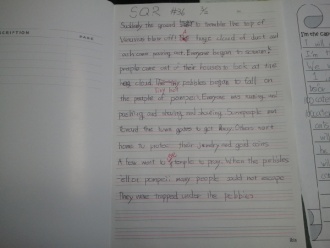 SQR #36 3/6
DESCRIPTION PAGE
Suddenly the ground began to tremble the top of
Vesuvius blew off! A huge cloud of dust and
rock came pouring out. Everyone began to scream
people came out of their houses to look at the
big cloud. The pebbles began to fall on
the people of pompeii. Everyone was running and
pushing and shoving and shouting. Some people ran
toward the town gates to get away. Others went
home to protect their jewelry and gold coins.
A few went to the temple to pray. When the pebbles
fell on pompeii many people could not escape
They were trapped under the pebbles